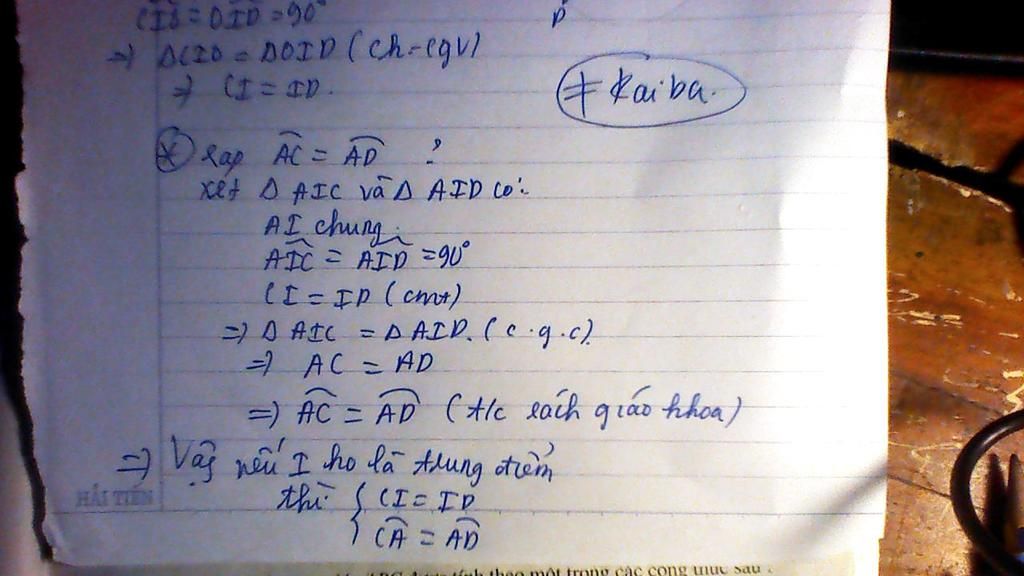 CIO = OID = 90°
D
=> ΔCIO = ΔOID (ch-cgv)
=> CI = ID.
≠ Kaiba.
* sao AC = AD ?
xét Δ AIC và Δ AID có:
AI chung.
AIC = AID = 90°
CI = ID (cmt)
=> Δ AIC = Δ AID. (c.g.c)
=> AC = AD
=> AC = AD (t/c sách giáo khoa)
=> Vậy nếu I là trung điểm
HẢI TIẾN
thì { CI = ID
CA = AD
ABC được tính theo một trong các công thức sau :